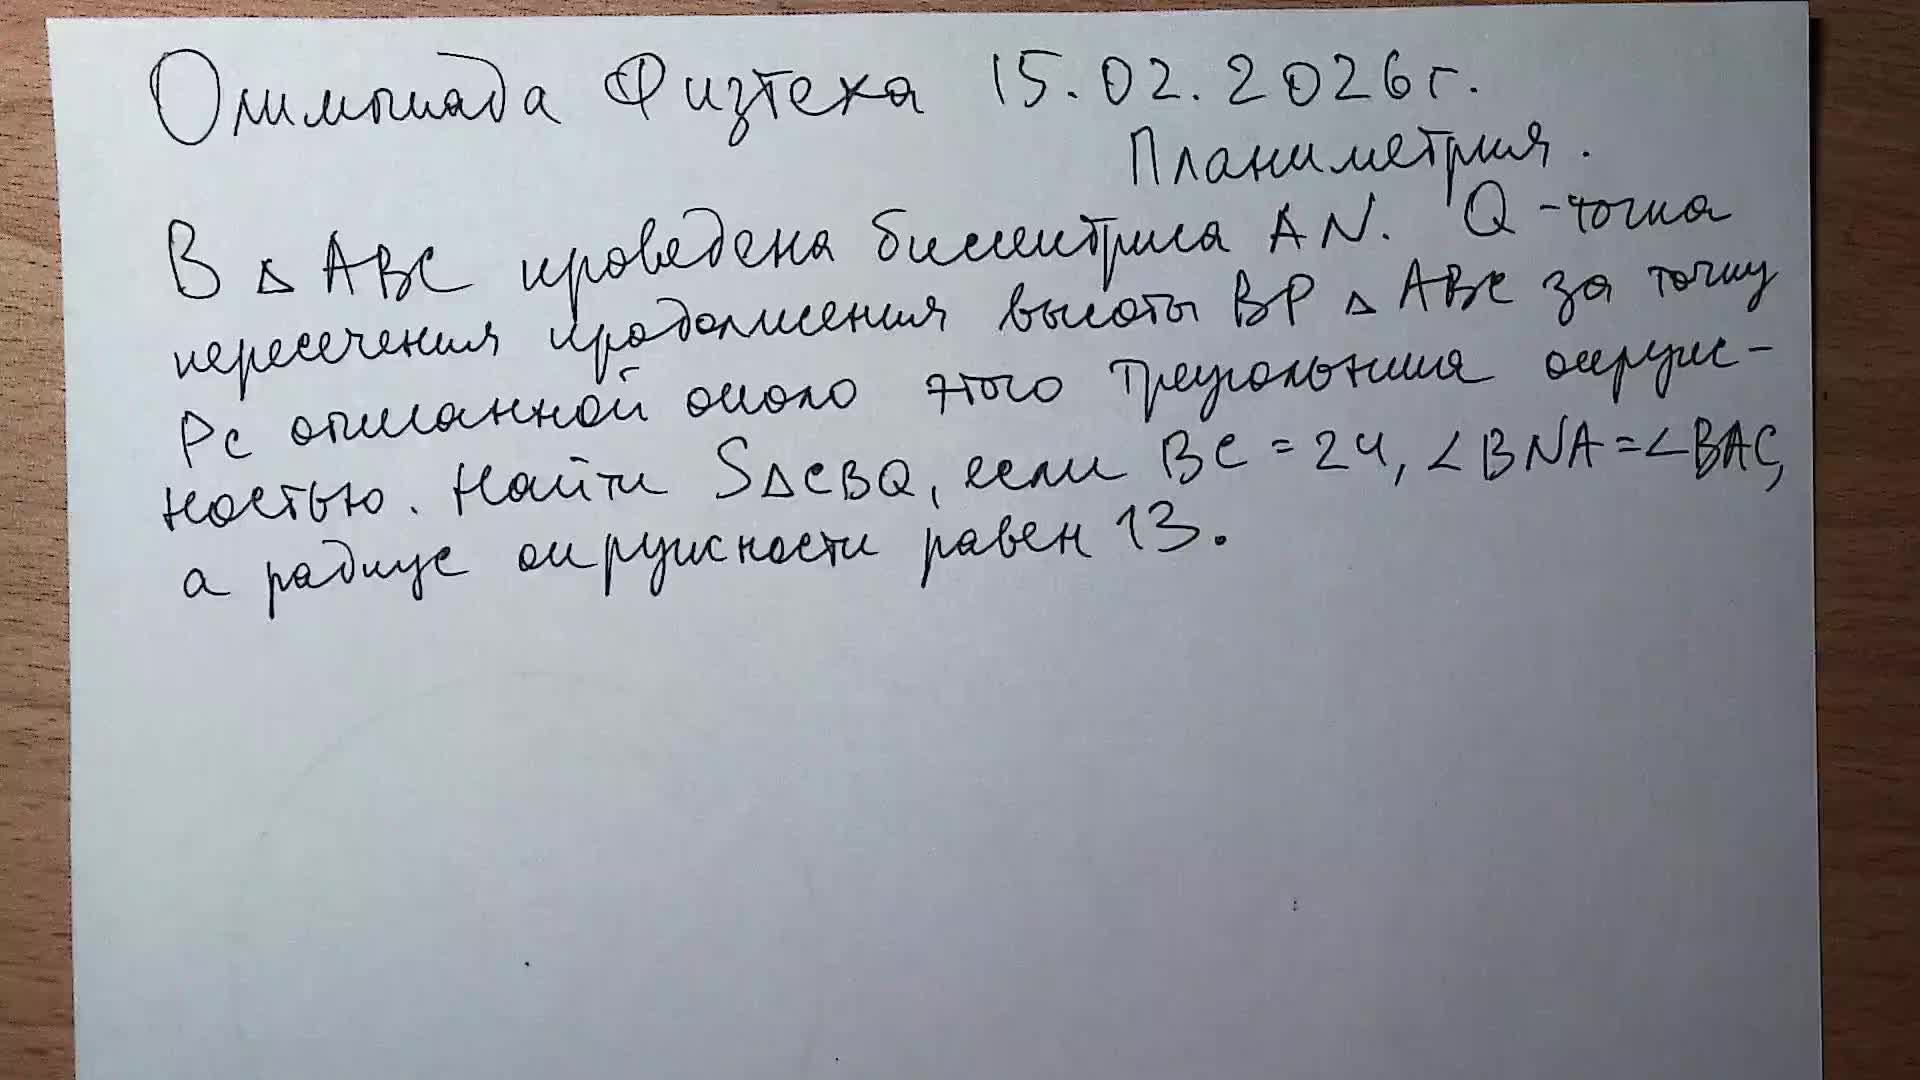 Олимпиада Физтеха 15.02.2026г.
Планиметрия.
В △ ABC проведена биссектриса AN. Q - точка
пересечения продолжения высоты BP △ ABC за точку
P с описанной около этого треугольника окруж-
ностью. Найти S△CBQ, если BC = 24, ∠BNA = ∠BAC,
а радиус окружности равен 13.